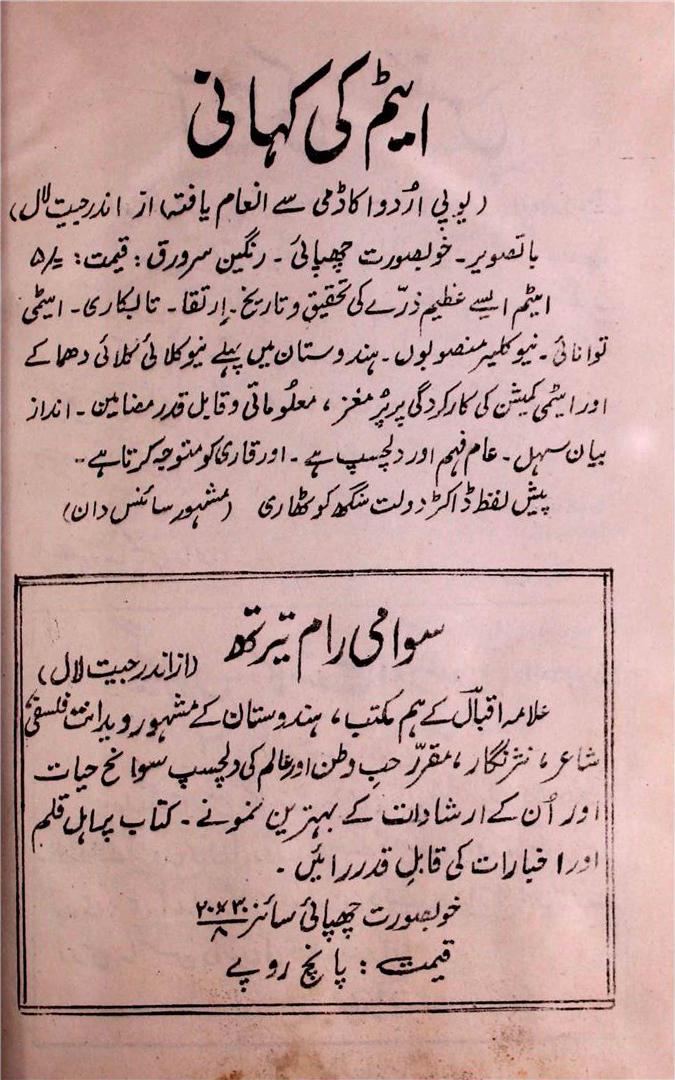 ایٹم کی کہانی
(یوپی اُردو اکاڈمی سے انعام یافتہ از اندر جیت لال)
باتصویر۔ خوبصورت چھپائی۔ رنگین سرورق: قیمت: ۵/-
ایٹم ایسے عظیم ذرّے کی تحقیق و تاریخ۔ اِرتقا۔ تابکاری۔ ایٹمی
توانائی۔ نیوکلیر منصوبوں۔ ہندوستان میں پہلے نیوکلائی کلائی دھماکے
اور ایٹمی کمیشن کی کارکردگی پر پُر مغز، معلُوماتی و قابل قدر مضامین۔ انداز
بیان سہل۔ عام فہم اور دلچسپ ہے۔ اور قاری کو متوجہ کرتا ہے۔۔
پیش لفظ ڈاکڑ دولت سنگھ کوٹھاری (مشہور سائنس دان)
سوامی رام تیرتھ
(از اندر جیت لال)
علامہ اقبالؔ کے ہم مکتب، ہندوستان کے مشہور ویدانت فلسفی،
شاعر، نثر نگار، مقرّر حبِ وطن اور عالم کی دلچسپ سوانح حیات
اور اُن کے ارشادات کے بہترین نمونے۔ کتاب پر اہل قلم
اور اخبارات کی قابلِ قدر رائیں۔
خوبصورت چھپائی سائز ۲۰×۳۰/۸
قیمت: پانچ روپے